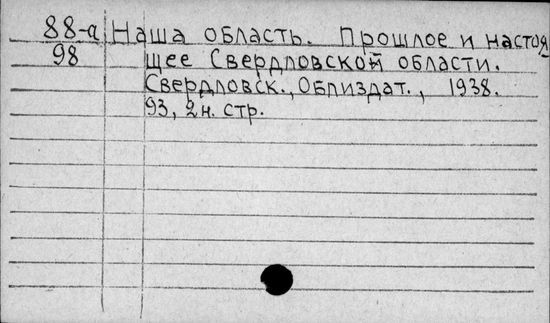 88-а Наша область. Прошлое и настоя
98 щее Свердловской области.
Свердловск., Облиздат., 1938.
93, 2 н. стр.